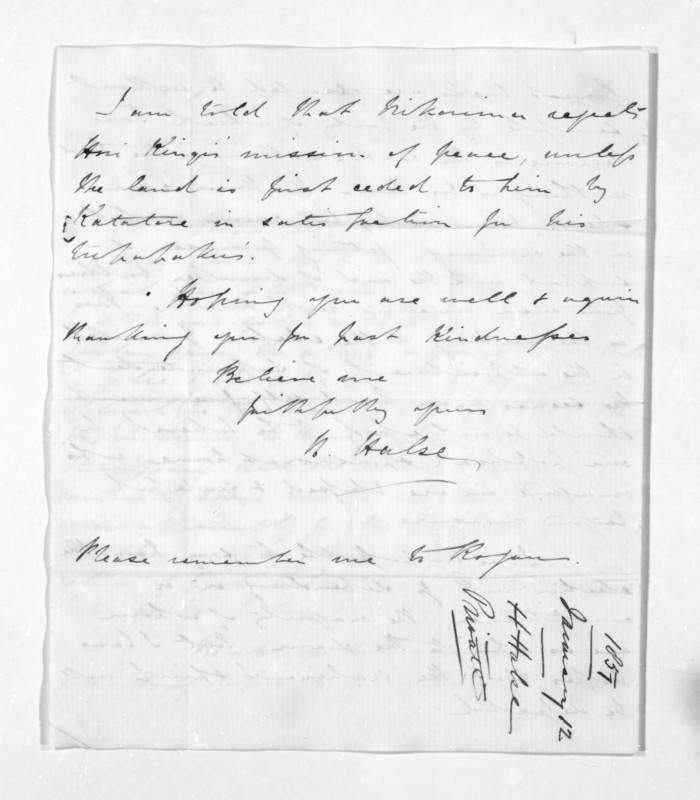 I am told that Nikorima rejects
Hori Kingi's mission of peace, unless
the land is first ceded to him by
Katatore in satisfaction for his
Tupapaku's.
Hoping you are well & again
thanking you for past kindnesses
Believe me
faithfully yours
H. Halse
Please remember me to Rogan.
1857
January 12
H Halse
Private